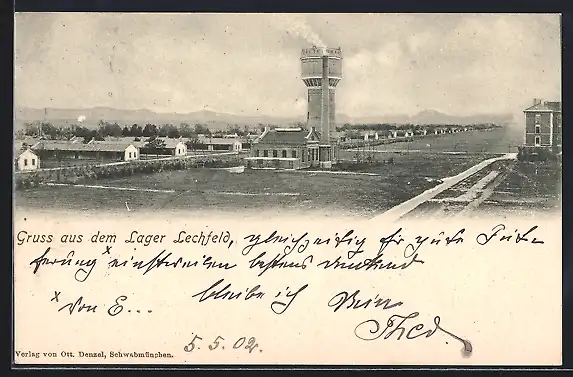 Gruss aus dem Lager Lechfeld, gleichzeitig für gute Füt-
terung x einstweilen bestens dankend
x Von E... bleibe ich Dein
Theo
5.5.02.
Verlag von Ott. Denzel, Schwabmünchen.